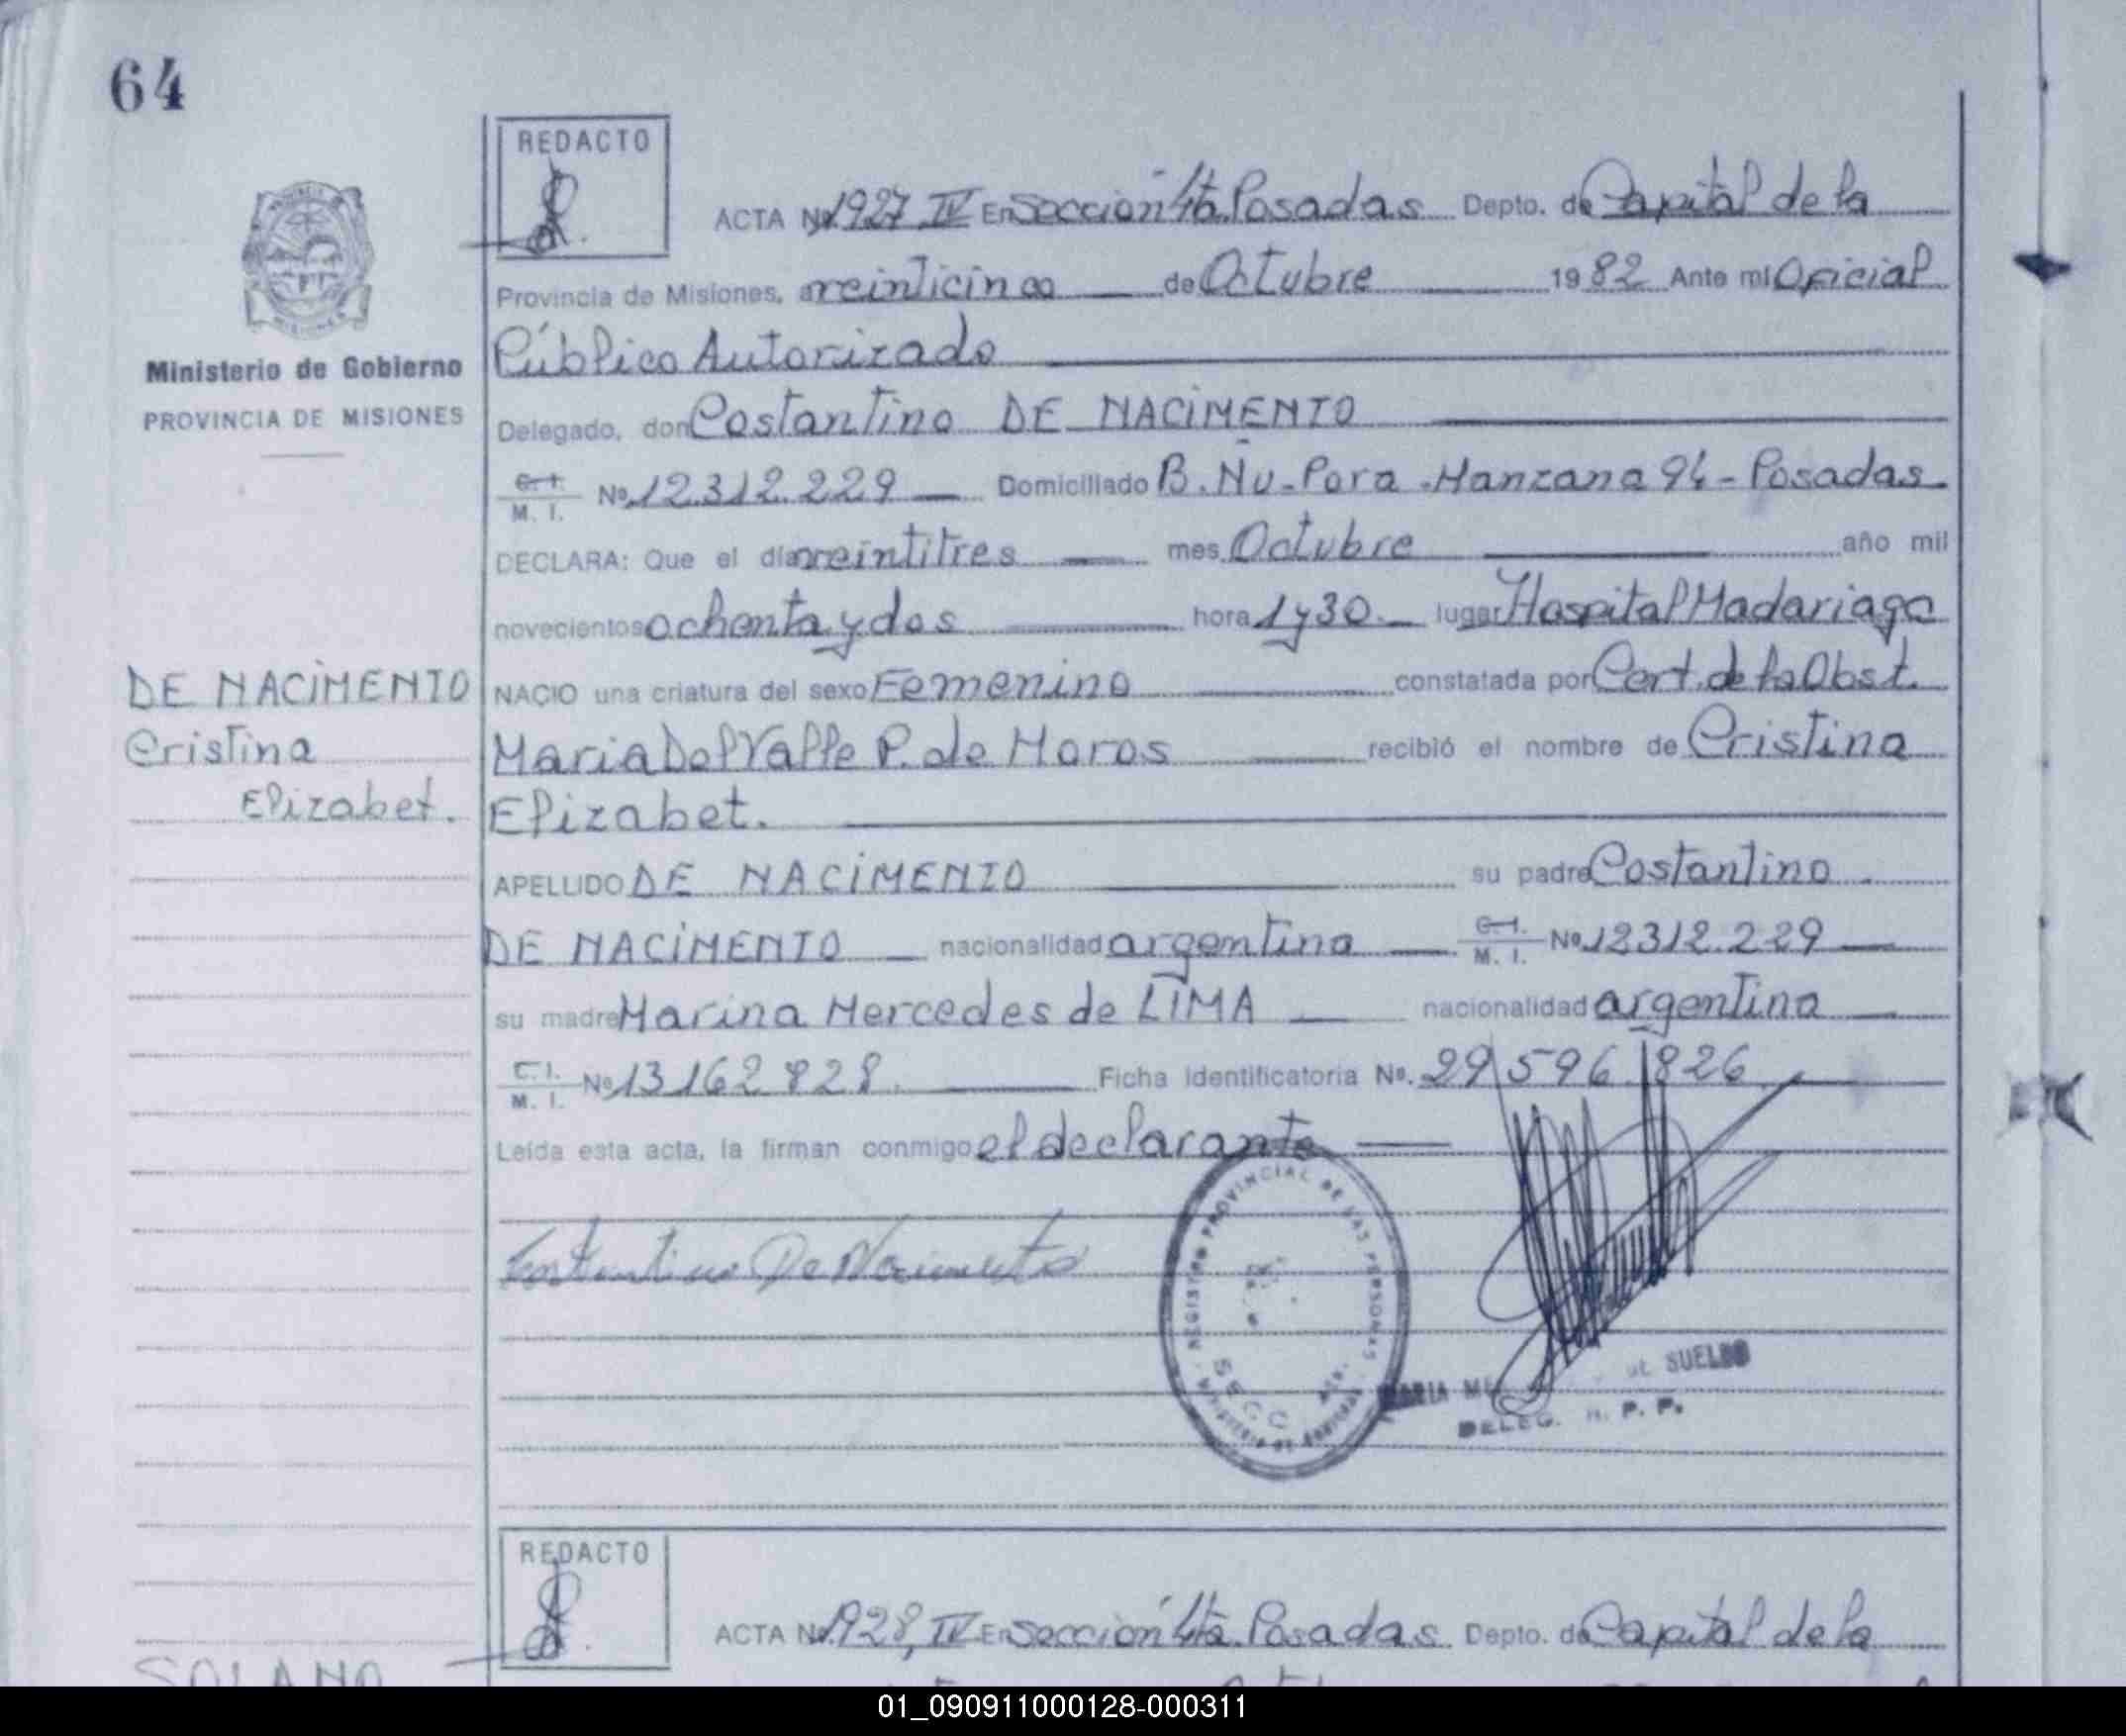 64
REDACTO
ACTA No 1927 IV En Sección 4ta. Posadas Depto. de Capital de la
Provincia de Misiones, a veinticinco de Octubre 1982 Ante mí Oficial
Público Autorizado
Ministerio de Gobierno
PROVINCIA DE MISIONES
Delegado, don Costantino DE NACIMENTO
C. I. M. I. No 12.312.229 Domiciliado B. Ñu-Pora -Manzana 94 - Posadas
DECLARA: Que el día veintitres mes Octubre año mil
novecientos ochenta y dos hora 1 y 30 lugar Hospital Madariaga
DE NACIMENTO
Cristina
Elizabet.
NACIO una criatura del sexo Femenino constatada por Cert. de la Obst.
Maria Del Valle P. de Moros recibió el nombre de Cristina
Elizabet.
APELLIDO DE NACIMENTO su padre Costantino
DE NACIMENTO nacionalidad argentina C. I. M. I. No 12312.229
su madre Marina Mercedes de LIMA nacionalidad argentina
C. I. M. I. No 13162828. Ficha Identificatoria No. 29 596 826
Leída esta acta, la firman conmigo el declarante
Costantino De Nacimento
REGISTRO PROVINCIAL DE LAS PERSONAS
SECC
MARIA SUELDO
DELEG. R. P. P.
REDACTO
ACTA No 1928, IV En Sección 4ta. Posadas Depto. de Capital de la
SOLANO
01_090911000128-000311